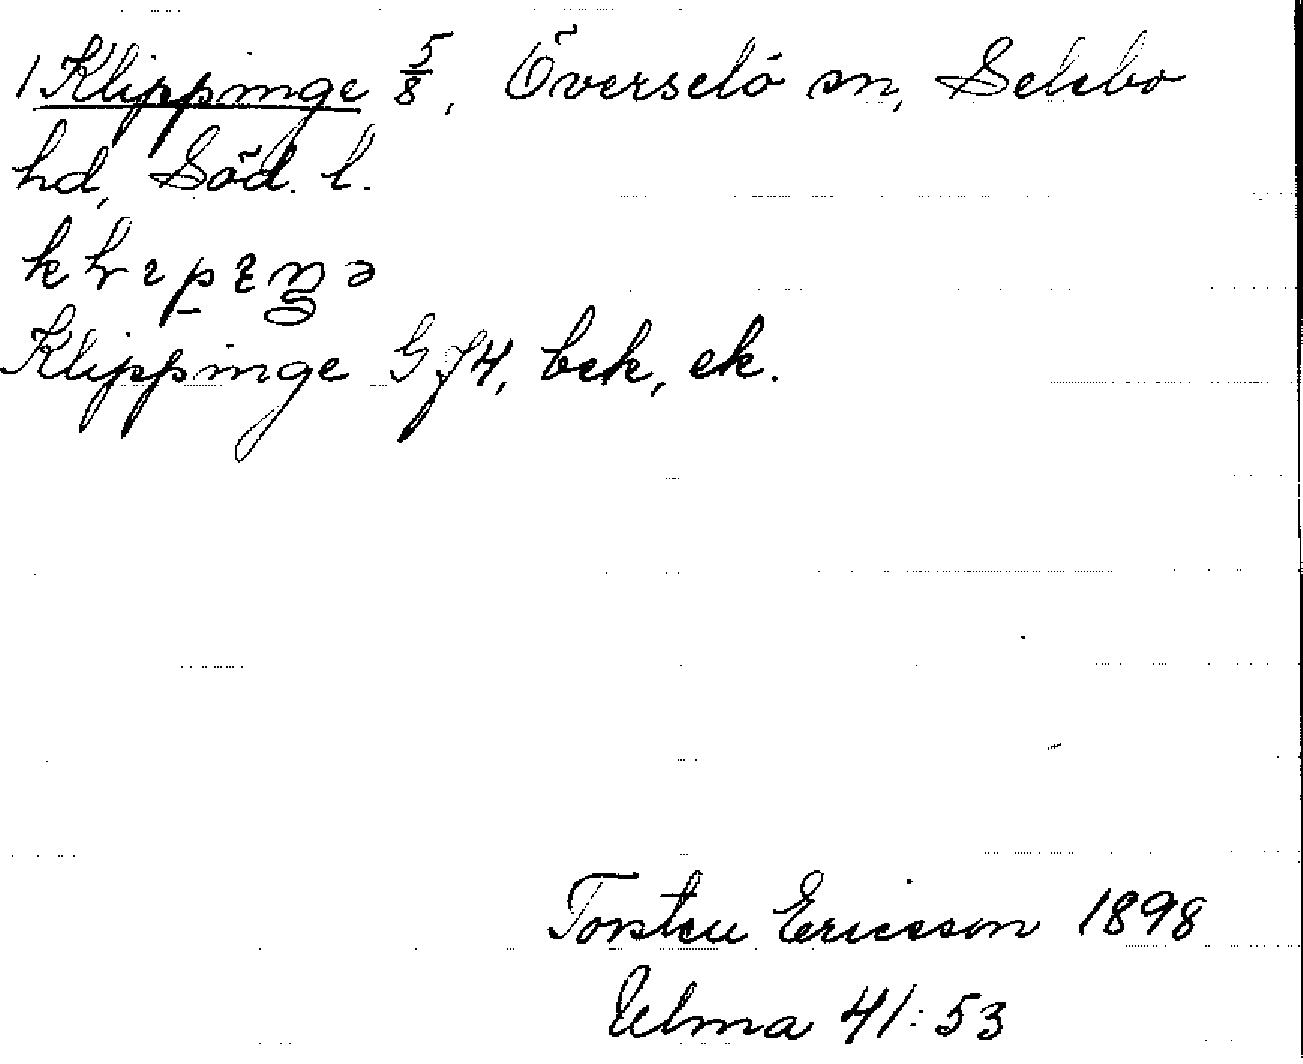 1 Klippinge 5/8, Överselö sn, Selebo
hd, Söd. l.
Klippinge GJ4, bek, ek.
Torsten Ericsson 1898
Ulma 41:53